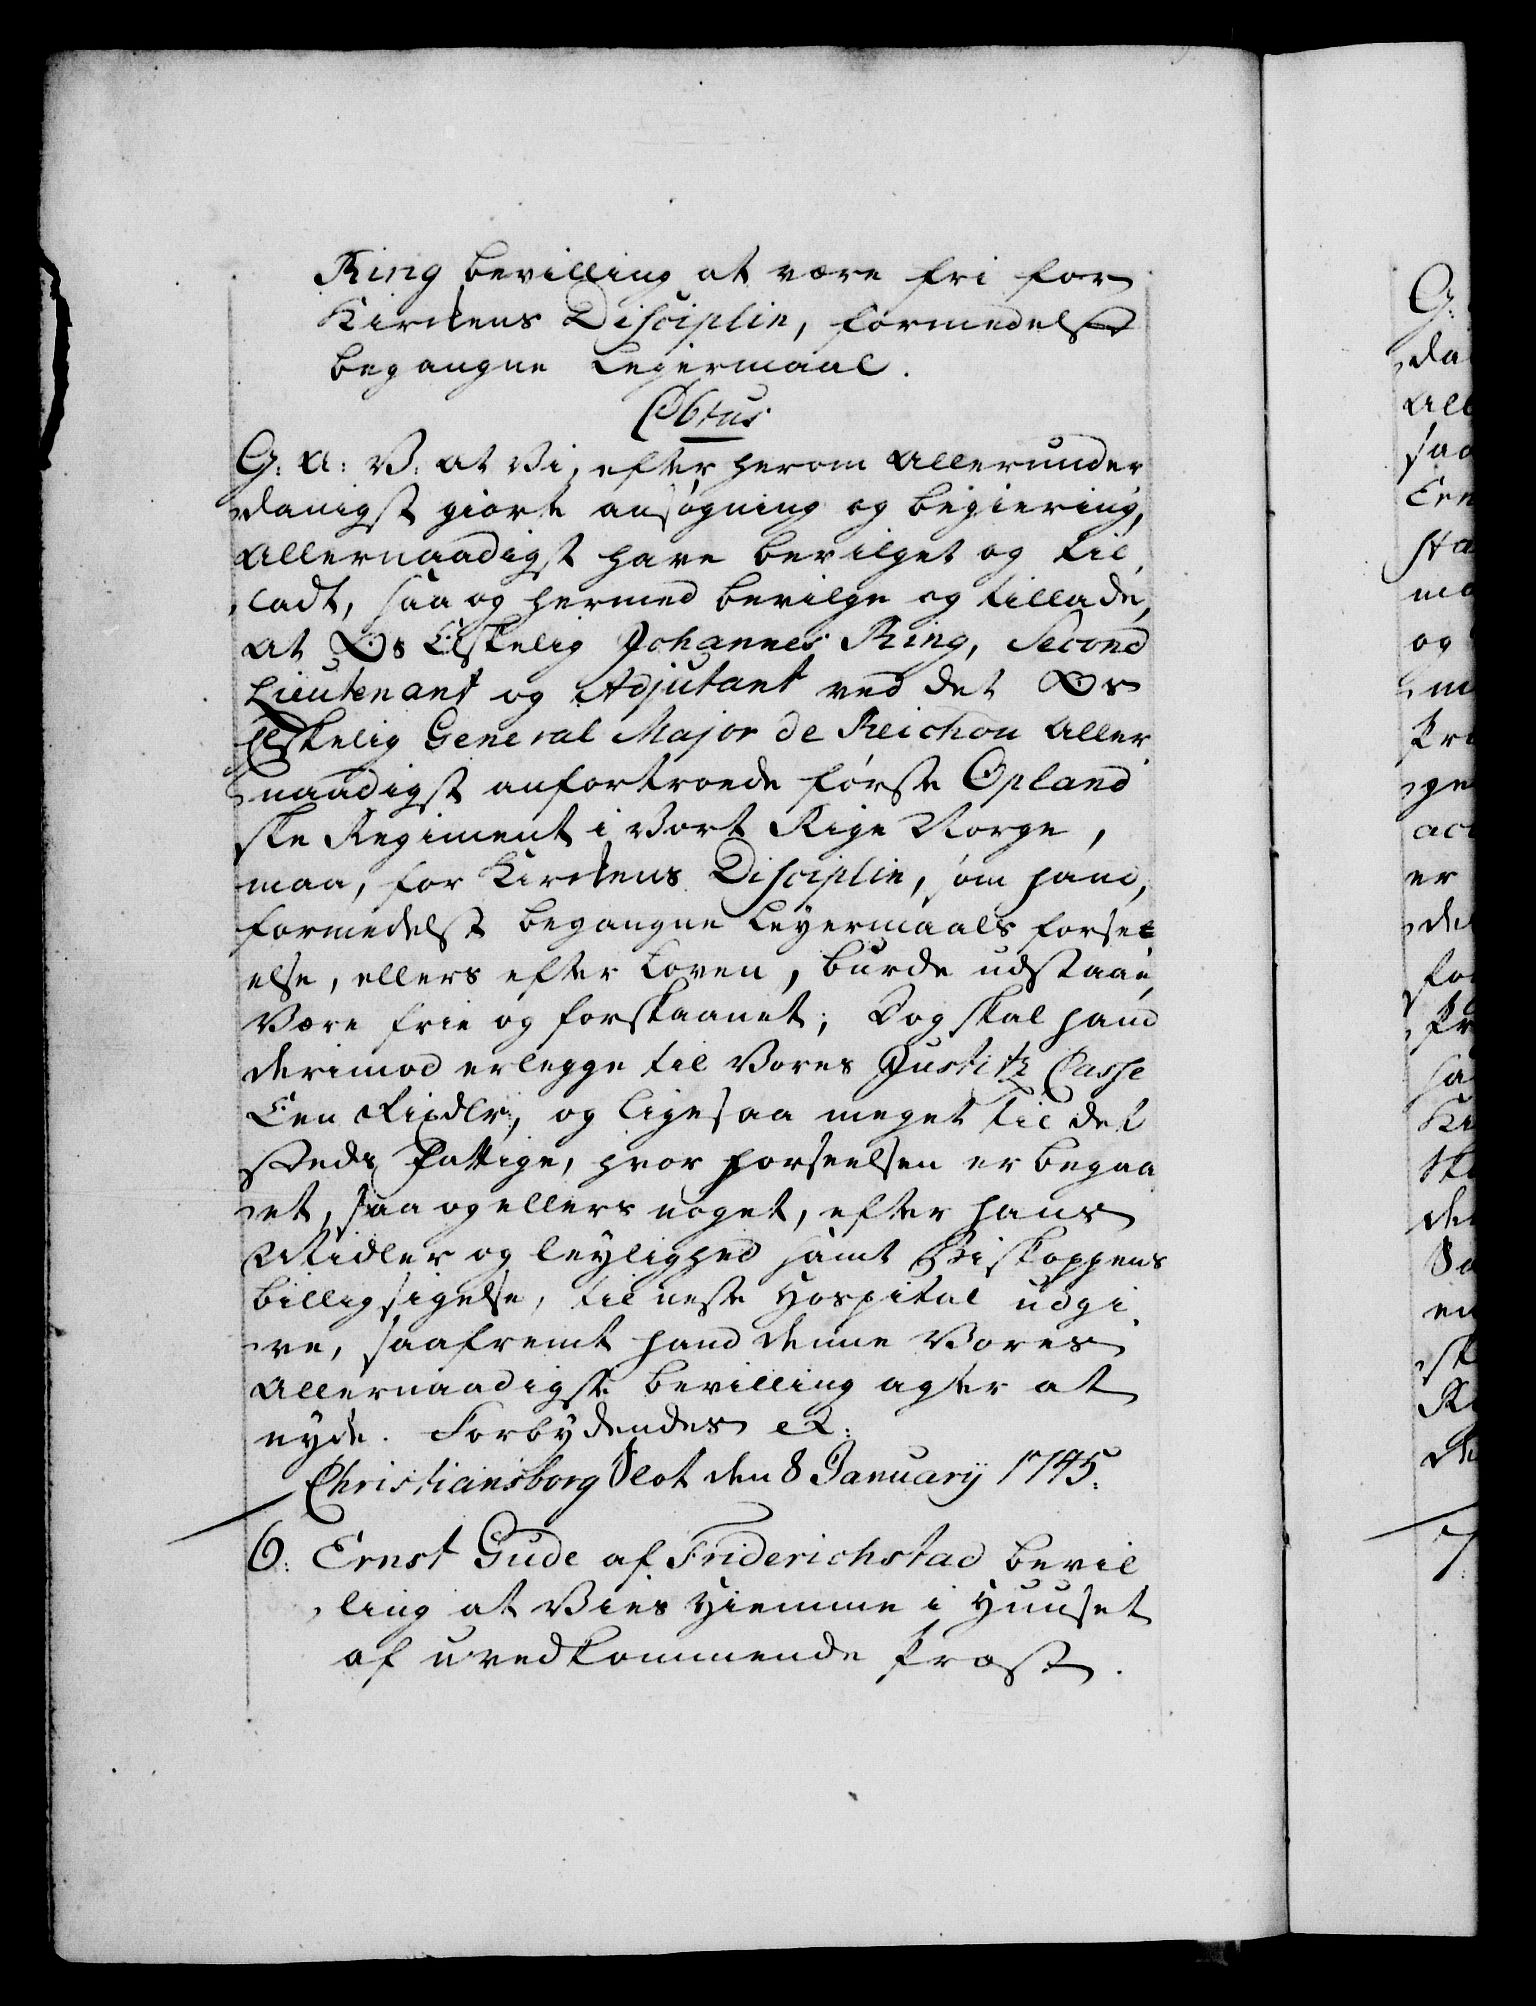 Ring bevilling at være fri for
Kirckens Disciplin, formedelst
begangne Leyermaal.
C6tus
G: A: V: at Vi, efter herom allerunder
danigst giorte ansøgning og begiering,
allernaadigst have bevilget og til
ladt, saa og hermed bevilge og tillade,
at Os Elskelig Johannes Ring, Second
Lieutenant og Adjutant ved det Os
Elskelig General Major de Reichou aller
naadigst anfortroede første Opland
ske Regiment i Vort Rige Norge,
maa, for Kirckens Disciplin, som hand,
formedelst begangne Leyermaals forse
else, ellers efter Loven, burde udstaae,
Være frie og forskaanet; Dog skal hand
derimod erlegge til Vores Justitz Casse
Een Rixdlr:, og ligesaa meget til det
steds Fattige, hvor forseelsen er begaa
et, saa og ellers noget, efter hans
Midler og leylighed samt Biskoppens
billigsigelse, til neste Hospital udgi
ve, saafremt hand denne Vores
allernaadigste bevilling agter at
nyde. Forbydendes &:
Christiansborg Slot den 8 Januarij 1745.
6: Ernst Gude af Friderichstad bevil
ling at Vies Hiemme i Huuset
af uvedkommende Præst.
G:
da
all
saa
Ern
sta
ma
og
m
Pr
ge
act
er
de
for
Pr
ha
Ki
ske
de
So
en
sk
Ri
de
7: